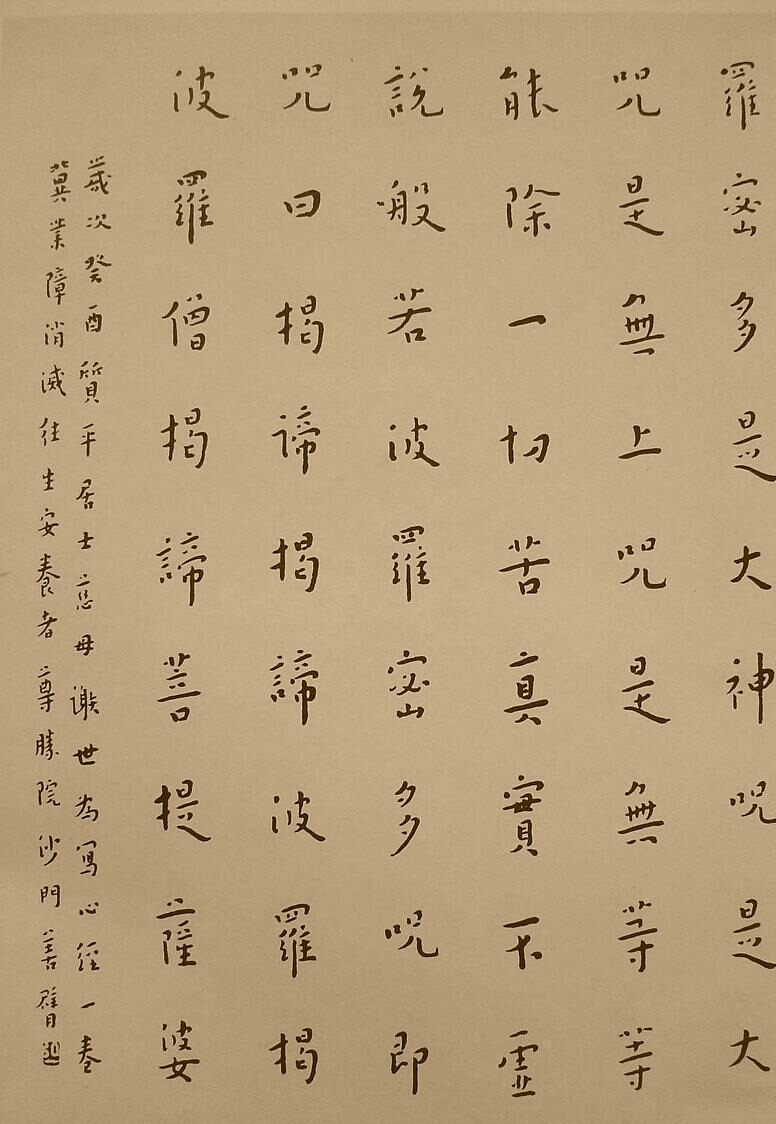 羅密多是大神咒是大
咒是無上咒是無等等
能除一切苦真實不虛
說般若波羅密多咒即
咒曰揭諦揭諦波羅揭
波羅僧揭諦菩提薩婆
歲次癸酉質平居士亡母謝世為寫心經一卷
冀業障消滅往生安養者尊勝院沙門善臂